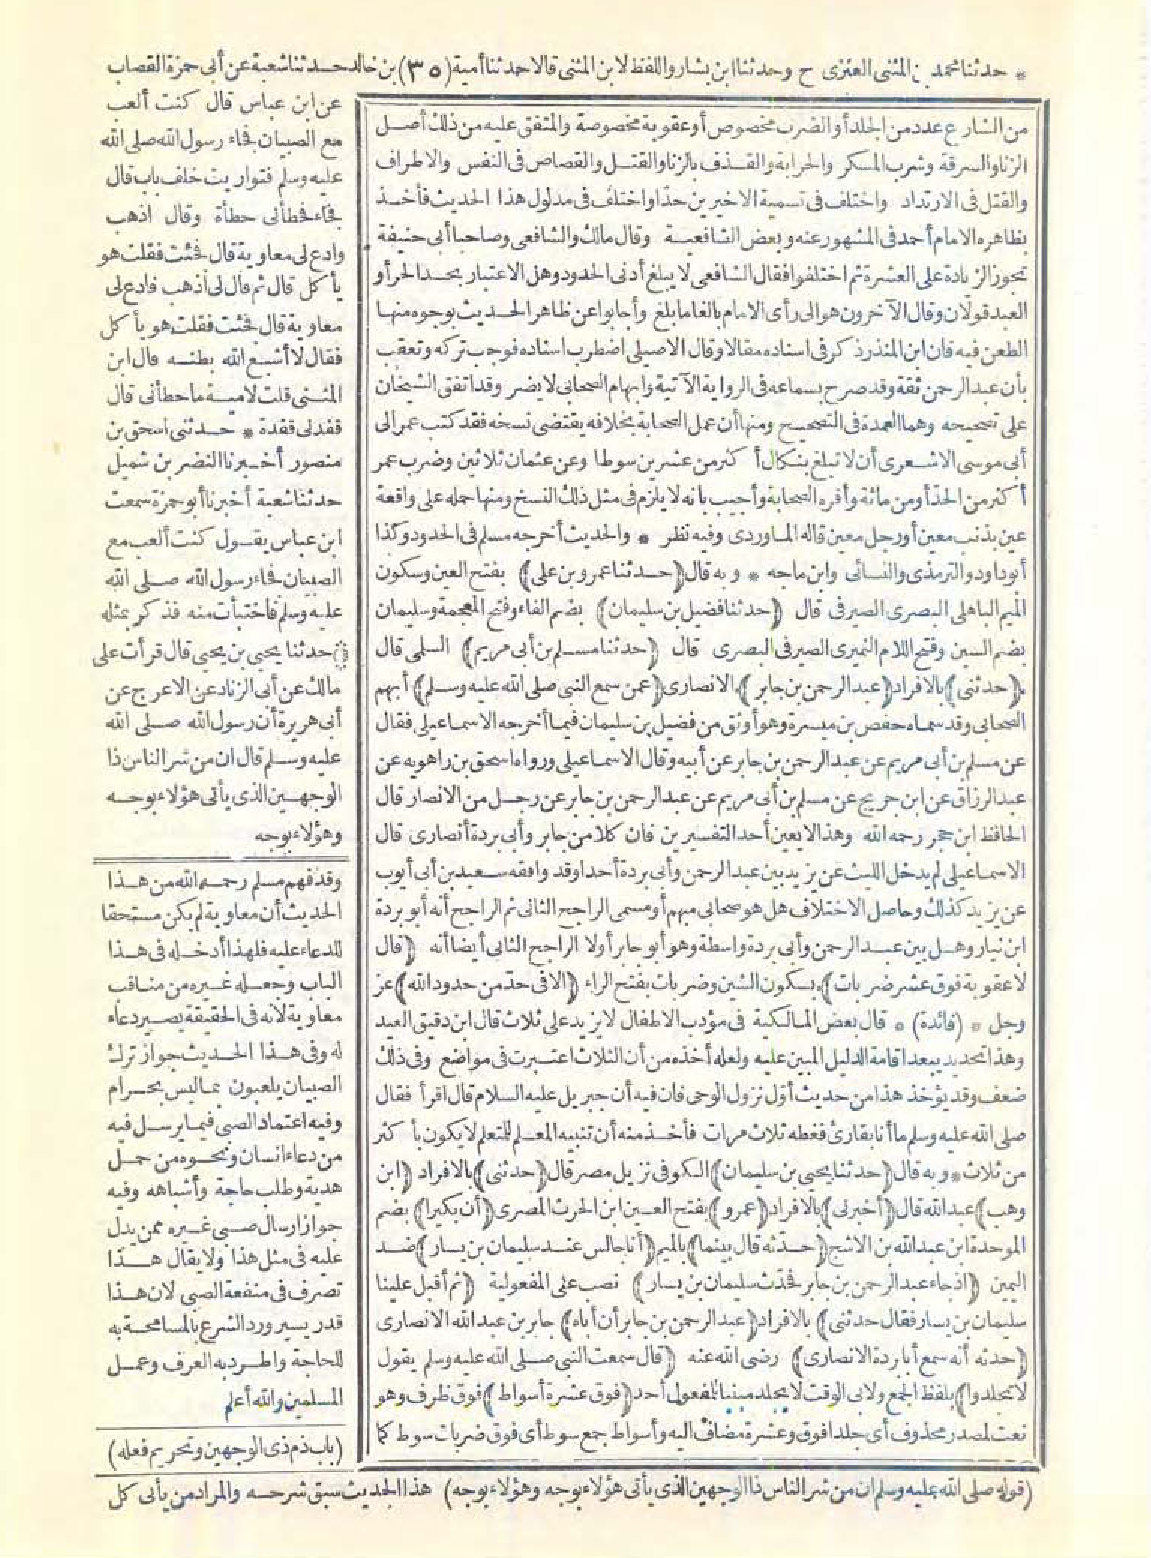 * حدثنا محمد بن المثنى العنزى ح وحدثنا ابن بشار واللفظ لابن المثنى قالا حدثنا أمية (٣٥) بن خالد حدثنا شعبة عن أبى حمزة القصاب
عن ابن عباس قال كنت ألعب
مع الصبيان فجاء رسول الله صلى الله
عليه وسلم فتواريت خلف باب قال
فجاء فحطأنى حطأة وقال اذهب
وادع لى معاوية قال فجئت فقلت هو
يأكل قال ثم قال لى اذهب فادع لى
معاوية قال فجئت فقلت هو يأكل
فقال لا أشبع الله بطنه قال ابن
المثنى قلت لامية ما حطأنى قال
قفدنى قفدة * حدثنى اسحق بن
منصور أخبرنا النضر بن شميل
حدثنا شعبة أخبرنا أبو حمزة سمعت
ابن عباس يقول كنت ألعب مع
الصبيان فجاء رسول الله صلى الله
عليه وسلم فاختبأت منه فذكر بمثله
حدثنا يحيى بن يحيى قال قرأت على
مالك عن أبى الزناد عن الاعرج عن
أبى هريرة أن رسول الله صلى الله
عليه وسلم قال ان من شر الناس ذا
الوجهين الذى يأتى هؤلاء بوجه
وهؤلاء بوجه
وقد فهم مسلم رحمه الله من هذا
الحديث أن معاوية لم يكن مستحقا
للدعاء عليه فلهذا أدخله فى هذا
الباب وجعله غيره من مناقب
معاوية لانه فى الحقيقة يصير دعاء
له وفى هذا الحديث جواز ترك
الصبيان يلعبون بما ليس بحرام
وفيه اعتماد الصبى فيما يرسل فيه
من دعاء انسان ونحوه من حمل
هدية وطلب حاجة وأشباهه وفيه
جواز ارسال صبى غيره ممن يدل
عليه فى مثل هذا ولا يقال هذا
تصرف فى منفعة الصبى لان هذا
قدر يسير ورد الشرع بالمسامحة به
للحاجة واطرد به العرف وعمل
المسلمين والله أعلم
(باب ذم ذى الوجهين وتحريم فعله)
من الشارع عدد من الجلد أو الضرب مخصوص أو عقوبة مخصوصة والمتفق عليه من ذلك أصل
الزنا والسرقة وشرب المسكر والحرابة والقذف بالزنا والقتل والقصاص فى النفس والاطراف
والقتل فى الارتداد واختلف فى تسمية الاخيرين حدا واختلف فى مدلول هذا الحديث فأخذ
بظاهره الامام أحمد فى المشهور عنه وبعض الشافعية وقال مالك والشافعى وصاحبا أبى حنيفة
تجوز الزيادة على العشرة ثم اختلفوا فقال الشافعى لا يبلغ أدنى الحدود وهل الاعتبار بحد الحر أو
العبد قولان وقال الآخرون هو الى رأى الامام بالغا ما بلغ وأجابوا عن ظاهر الحديث بوجوه منها
الطعن فيه فان ابن المنذر ذكر فى اسناده مقالا وقال الاصيلى اضطرب اسناده فوجب تركه وتعقب
بأن عبد الرحمن ثقة وقد صرح بسماعه فى الرواية الآتية وابهام الصحابى لا يضر وقد اتفق الشيخان
على تصحيحه وهما العمدة فى التصحيح ومنها أن عمل الصحابة بخلافه يقتضى نسخه فقد كتب عمر الى
أبى موسى الاشعرى أن لا تبلغ بنكال أكثر من عشرين سوطا وعن عثمان ثلاثين وضرب عمر
أكثر من الحد أو من مائة وأقره الصحابة وأجيب بانه لا يلزم فى مثل ذلك النسخ ومنها حمله على واقعة
عين بذنب معين أو رجل معين قاله الماوردى وفيه نظر * والحديث أخرجه مسلم فى الحدود وكذا
أبو داود والترمذى والنسائى وابن ماجه * وبه قال (حدثنا عمرو بن على) بفتح العين وسكون
الميم الباهلى البصرى الصيرفى قال (حدثنا فضيل بن سليمان) بضم الفاء وفتح المعجمة وسليمان
بضم السين وفتح اللام النميرى الصيرفى البصرى قال (حدثنا مسلم بن أبى مريم) السلمى قال
(حدثنى) بالافراد (عبد الرحمن بن جابر) الانصارى (عمن سمع النبى صلى الله عليه وسلم) أبهم
الصحابى وقد سماه حفص بن ميسرة وهو أوثق من فضيل بن سليمان فيما أخرجه الاسماعيلى فقال
عن مسلم بن أبى مريم عن عبد الرحمن بن جابر عن أبيه وقال الاسماعيلى ورواه اسحق بن راهويه عن
عبد الرزاق عن ابن جريج عن مسلم بن أبى مريم عن عبد الرحمن بن جابر عن رجل من الانصار قال
الحافظ ابن حجر رحمه الله وهذا لا يعين أحد التفسيرين فان كلا من جابر وأبى بردة أنصارى قال
الاسماعيلى لم يدخل الليث عن يزيد بين عبد الرحمن وأبى بردة أحدا وقد وافقه سعيد بن أبى أيوب
عن يزيد كذلك وحاصل الاختلاف هل هو صحابى مبهم أو مسمى الراجح الثانى ثم الراجح أنه أبو بردة
ابن نيار وهل بين عبد الرحمن وأبى بردة واسطة وهو أبو جابر أو لا الراجح الثانى أيضا أنه (قال
لا عقوبة فوق عشر ضربات) بسكون الشين وضربات بفتح الراء (الا فى حد من حدود الله) عز
وجل * (فائدة) * قال بعض المالكية فى مؤدب الاطفال لا يزيد على ثلاث قال ابن دقيق العيد
وهذا تحديد يبعد اقامة الدليل المبين عليه ولعله أخذه من أن الثلاث اعتبرت فى مواضع وفى ذلك
ضعف وقد يؤخذ هذا من حديث أول نزول الوحى فان فيه أن جبريل عليه السلام قال اقرأ فقال
صلى الله عليه وسلم ما أنا بقارئ فغطه ثلاث مرات فأخذ منه أن تنبيه المعلم للمتعلم لا يكون بأكثر
من ثلاث * وبه قال (حدثنا يحيى بن سليمان) الكوفى نزيل مصر قال (حدثنى) بالافراد (ابن
وهب) عبد الله قال (أخبرنى) بالافراد (عمرو) بفتح العين ابن الحرث المصرى (أن بكيرا) بضم
الموحدة ابن عبد الله بن الاشج (حدثه قال بينما) بالميم (أنا جالس عند سليمان بن يسار) ضد
اليمين (اذ جاء عبد الرحمن بن جابر فحدث سليمان بن يسار) نصب على المفعولية (ثم أقبل علينا
سليمان بن يسار فقال حدثنى) بالافراد (عبد الرحمن بن جابر أن أباه) جابر بن عبد الله الانصارى
(حدثه أنه سمع أبا بردة الانصارى) رضى الله عنه (قال سمعت النبى صلى الله عليه وسلم يقول
لا تجلدوا) بلفظ الجمع ولابى الوقت لا يجلد مبنيا للمفعول أحد (فوق عشرة أسواط) فوق ظرف وهو
نعت لمصدر محذوف أى جلدا فوق وعشرة مضاف اليه وأسواط جمع سوط أى فوق ضربات سوط كما
(قوله صلى الله عليه وسلم ان من شر الناس ذا الوجهين الذى يأتى هؤلاء بوجه وهؤلاء بوجه) هذا الحديث سبق شرحه والمراد من يأتى كل